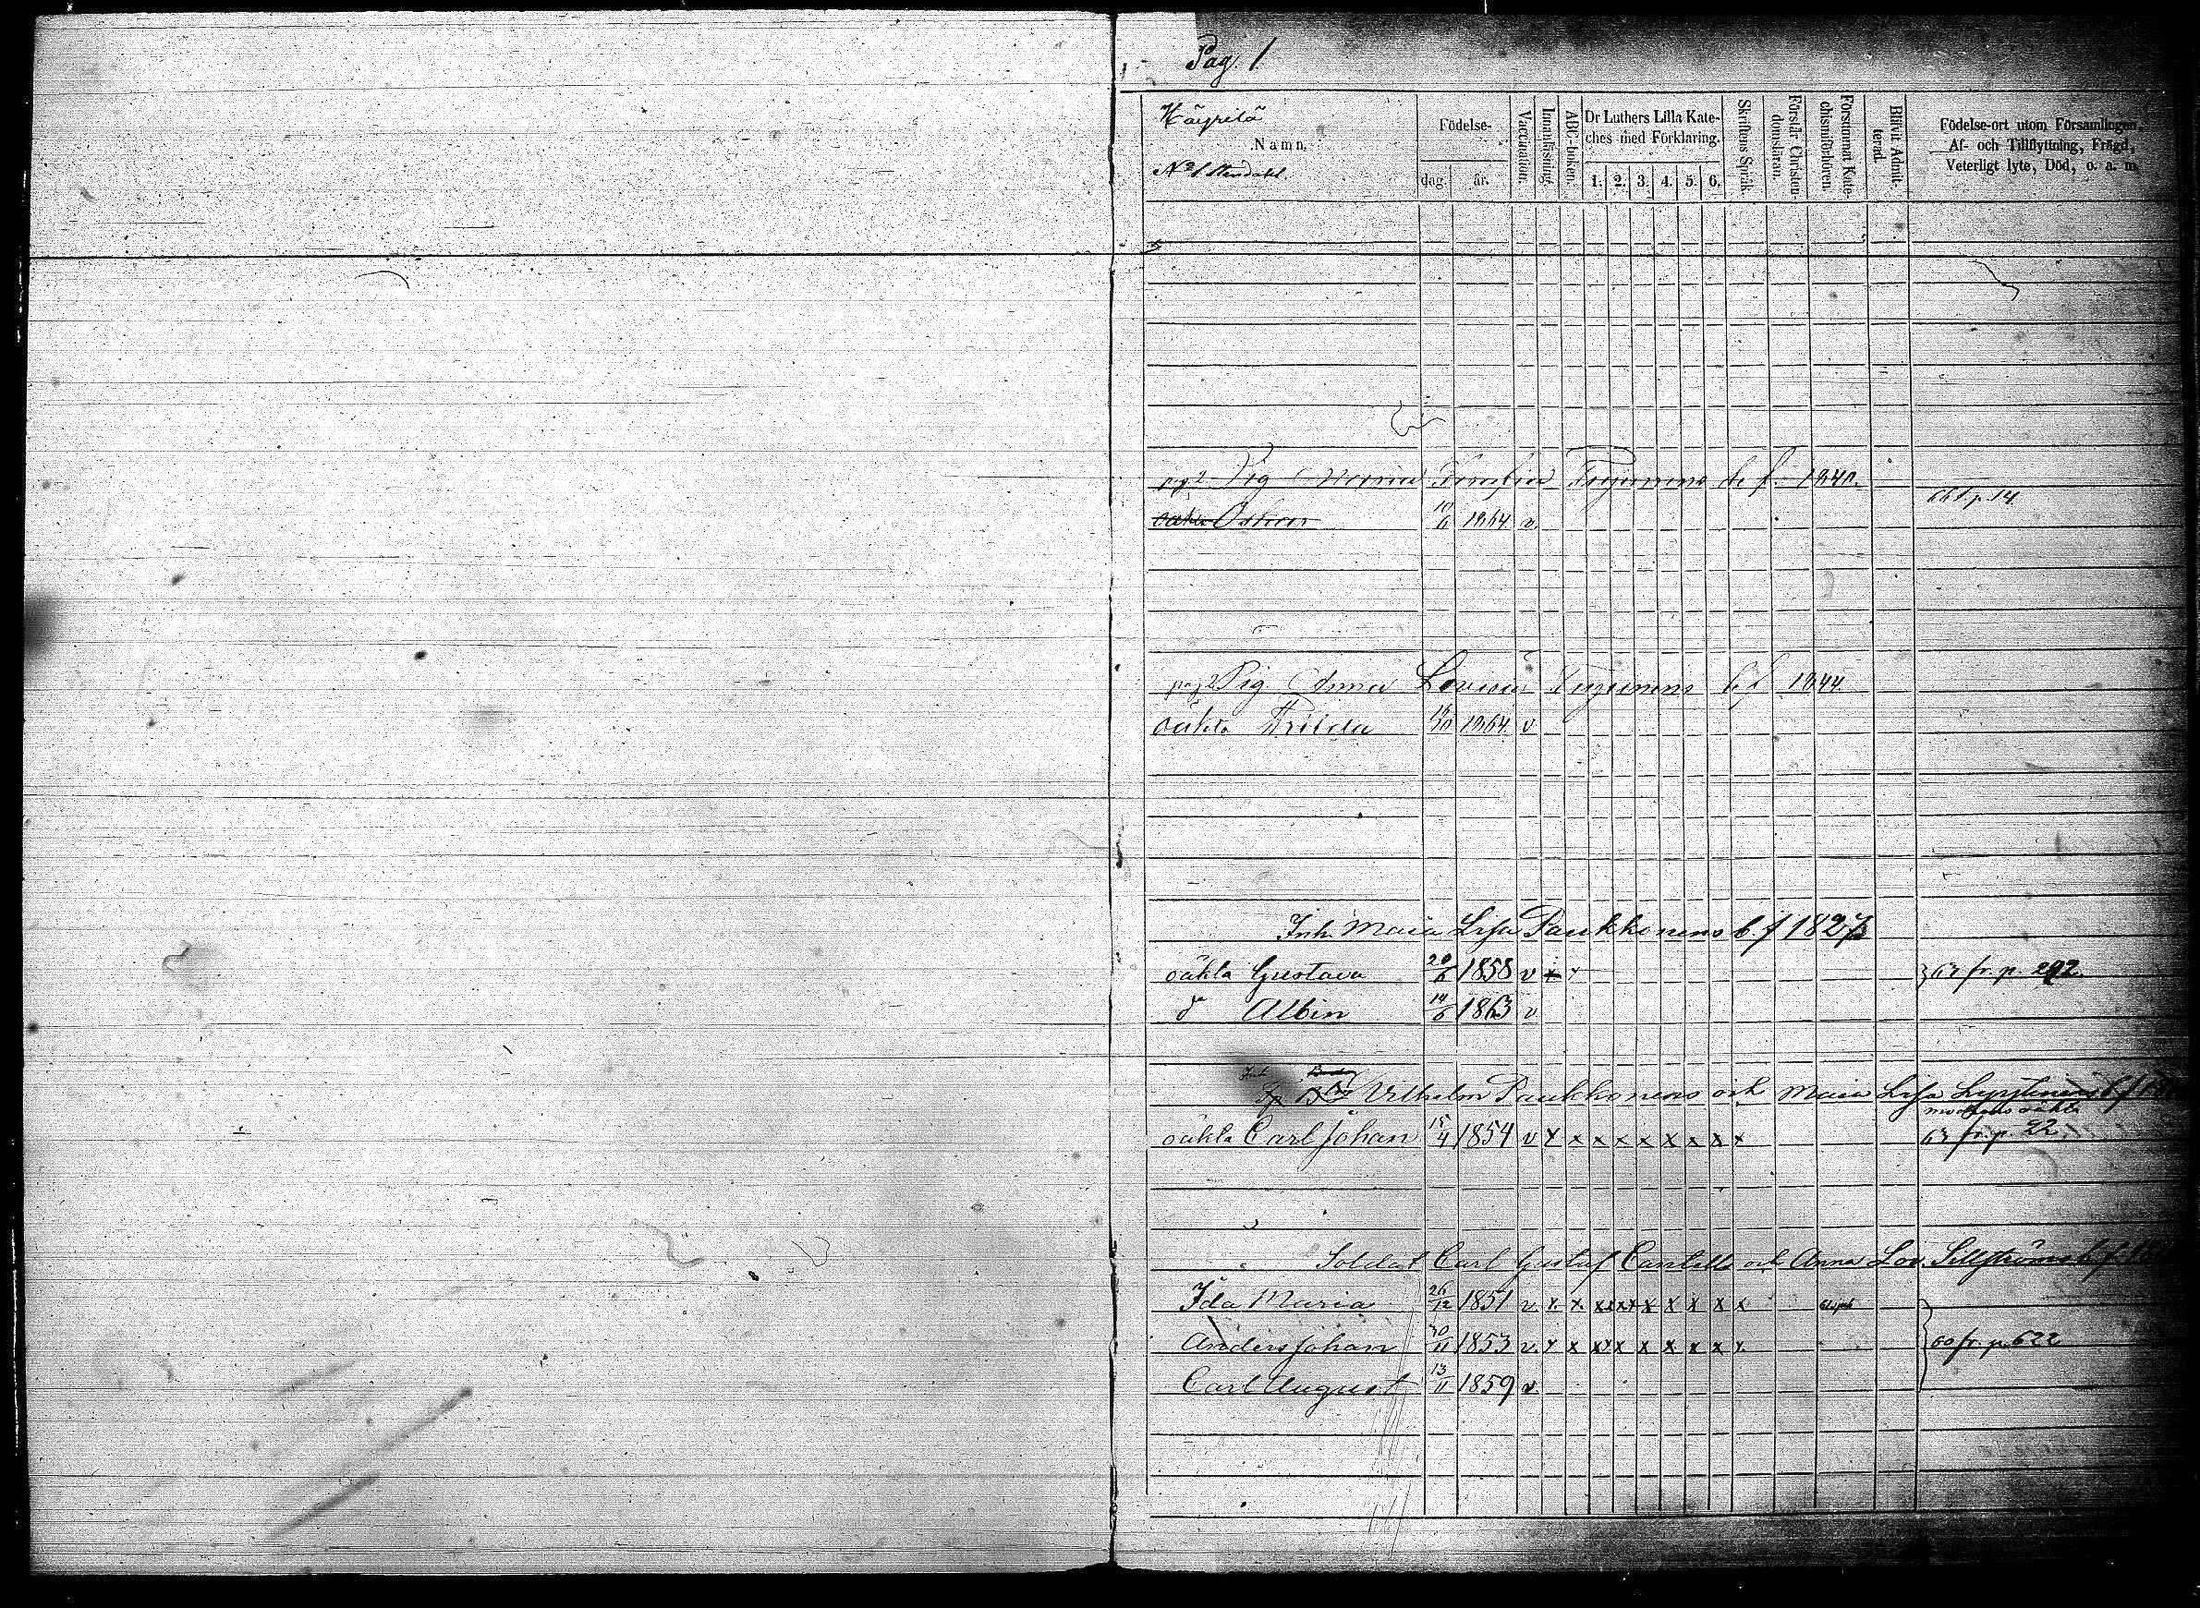 Pag. 1
Käyrilä
Namn,
No 1 Stendahl.
Födelse-
dag. år.
Vaccination.
Innanläsning.
ABC-boken.
Dr Luthers Lilla Kate-
ches med Förklaring.
1. 2. 3. 4. 5. 6.
Skriftens Språk.
Förstår Christen-
domsläran.
Försummat Kate-
chismiförhören.
Blifvit Admit-
terad.
Födelse-ort utom Församlingen,
Af- och Tillflyttning, Frägd,
Veterligt lyte, Död, o. a. m.
pag 2 Pig b. f. 1840.
oäkta Oskar 6 1864 v p. 14
pag 2 Pig Anna Lovisa b. f. 1844.
oäkta Frilda 10 1864 v
Inh. Maia Lisa Paukkonens b. f 1827
oäkta Gustava 20/6 1858 v x x 63 fr. p. 292
do Albin 14/6 1863 v
Vilhelm Paukkonens och Maia Lisa
oäkta Carl Johan 15/4 1854 v x x x x x x x x x 63 fr. p. 22
Soldat Carl Gustaf och Anna Lov.
Ida Maria 26/12 1851 v x x x x x x x x x x
Anders Johan 30/11 1853 v x x x x x x x x x 60 fr. p. 622
Carl August 13/11 1859 v